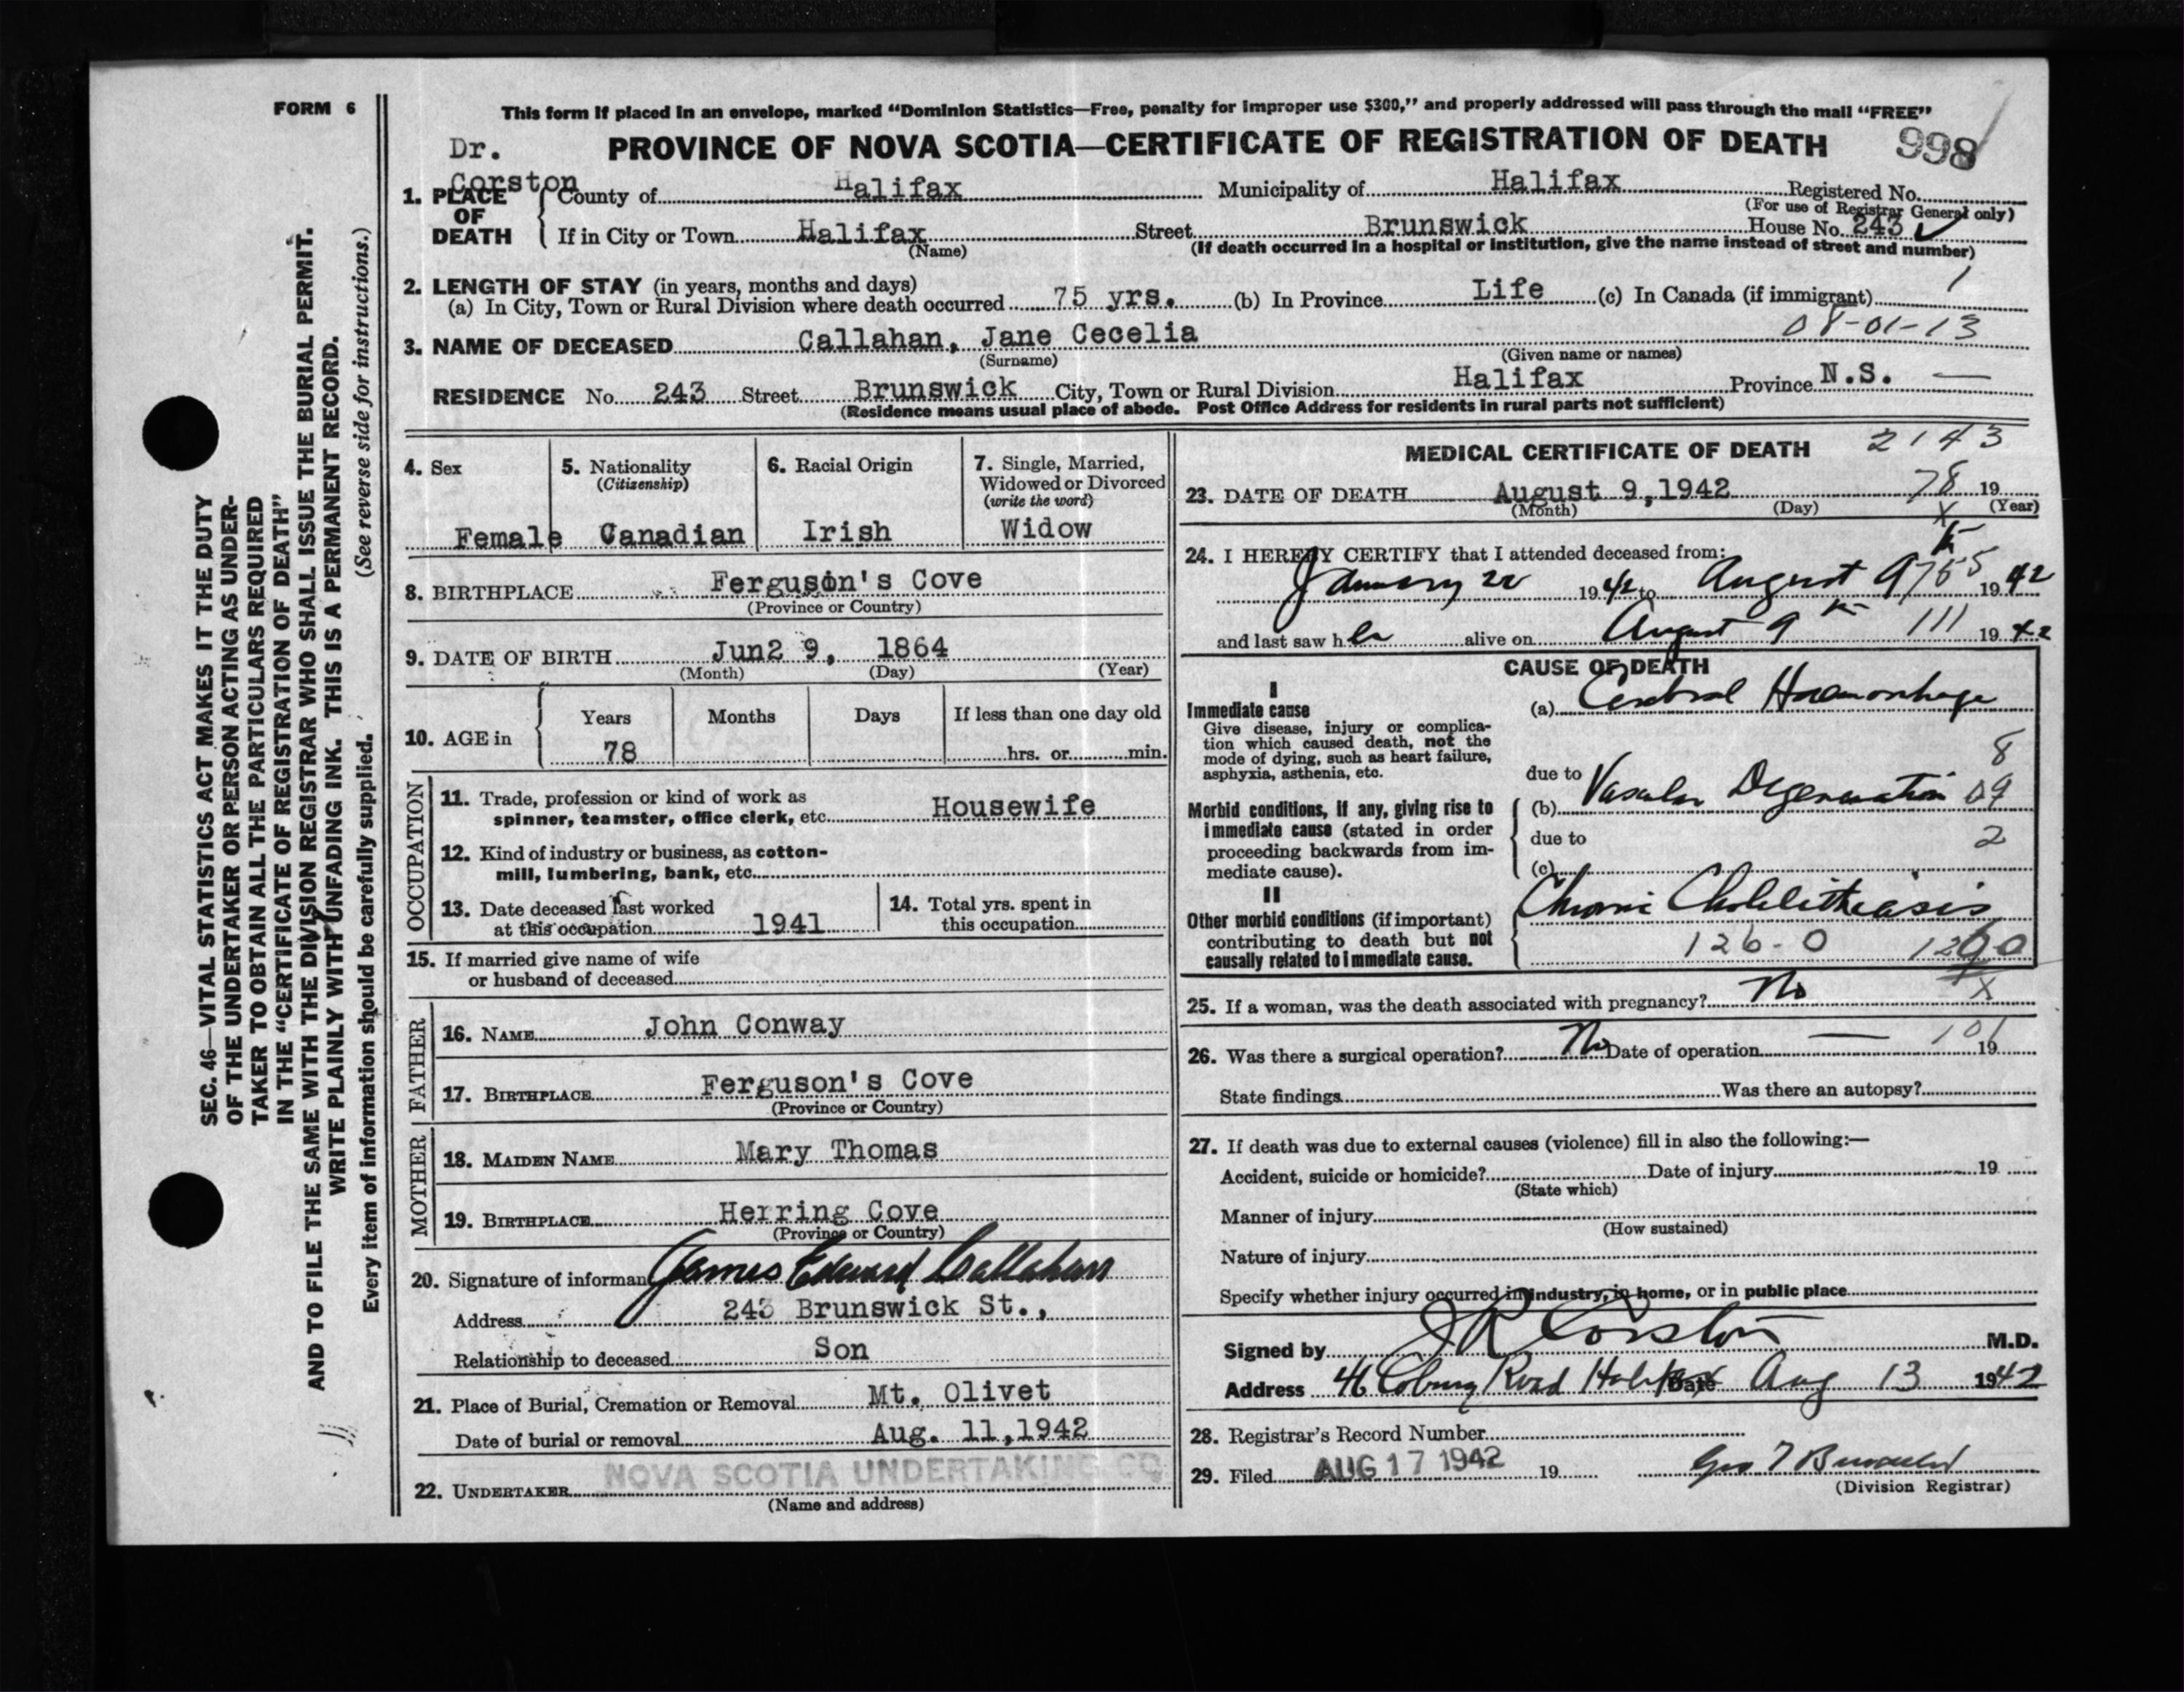 FORM 6
This form if placed in an envelope, marked “Dominion Statistics—Free, penalty for improper use $300,” and properly addressed will pass through the mail “FREE”
Dr. Corston
PROVINCE OF NOVA SCOTIA—CERTIFICATE OF REGISTRATION OF DEATH
998
1. PLACE OF DEATH
County of Halifax Municipality of Halifax Registered No.
(For use of Registrar General only)
If in City or Town Halifax Street Brunswick House No. 243
(Name) (If death occurred in a hospital or institution, give the name instead of street and number)
2. LENGTH OF STAY (in years, months and days)
(a) In City, Town or Rural Division where death occurred 75 yrs. (b) In Province Life (c) In Canada (if immigrant)
08-01-13
3. NAME OF DECEASED Callahan, Jane Cecelia
(Surname) (Given name or names)
RESIDENCE No. 243 Street Brunswick City, Town or Rural Division Halifax Province N.S. —
(Residence means usual place of abode. Post Office Address for residents in rural parts not sufficient)
4. Sex
Female
5. Nationality
(Citizenship)
Canadian
6. Racial Origin
Irish
7. Single, Married,
Widowed or Divorced
(write the word)
Widow
8. BIRTHPLACE Ferguson's Cove
(Province or Country)
9. DATE OF BIRTH Jun2 9, 1864
(Month) (Day) (Year)
10. AGE in
Years Months Days If less than one day old
78 hrs. or min.
OCCUPATION
11. Trade, profession or kind of work as
spinner, teamster, office clerk, etc. Housewife
12. Kind of industry or business, as cotton-
mill, lumbering, bank, etc.
13. Date deceased last worked
at this occupation 1941
14. Total yrs. spent in
this occupation
15. If married give name of wife
or husband of deceased
FATHER
16. NAME John Conway
17. BIRTHPLACE Ferguson's Cove
(Province or Country)
MOTHER
18. MAIDEN NAME Mary Thomas
19. BIRTHPLACE Herring Cove
(Province or Country)
20. Signature of informan James Edward Callahan
Address 243 Brunswick St.,
Relationship to deceased Son
21. Place of Burial, Cremation or Removal Mt. Olivet
Date of burial or removal Aug. 11,1942
22. UNDERTAKER NOVA SCOTIA UNDERTAKING CO.
(Name and address)
MEDICAL CERTIFICATE OF DEATH 2143
23. DATE OF DEATH August 9,1942 78 19
(Month) (Day) (Year)
X
24. I HEREBY CERTIFY that I attended deceased from:
January 22 1942 to August 9th 755 1942
and last saw her alive on August 9th 111 1942
CAUSE OF DEATH
I
Immediate cause
Give disease, injury or complica-
tion which caused death, not the
mode of dying, such as heart failure,
asphyxia, asthenia, etc.
(a) Cerebral Haemorrhage
8
due to
Morbid conditions, if any, giving rise to
immediate cause (stated in order
proceeding backwards from im-
mediate cause).
(b) Vascular Degeneration 09
due to 2
(c)
II
Other morbid conditions (if important)
contributing to death but not
causally related to immediate cause.
Chronic Cholelithiasis
126-0 1260
25. If a woman, was the death associated with pregnancy? No X
26. Was there a surgical operation? No Date of operation — 101 19
State findings Was there an autopsy?
27. If death was due to external causes (violence) fill in also the following:—
Accident, suicide or homicide? Date of injury 19
(State which)
Manner of injury
(How sustained)
Nature of injury
Specify whether injury occurred in industry, in home, or in public place
Signed by J R Corston M.D.
Address 46 Coburg Road Halifax Date Aug 13 1942
28. Registrar's Record Number
29. Filed AUG 17 1942 19
(Division Registrar)
SEC. 46—VITAL STATISTICS ACT MAKES IT THE DUTY
OF THE UNDERTAKER OR PERSON ACTING AS UNDER-
TAKER TO OBTAIN ALL THE PARTICULARS REQUIRED
IN THE “CERTIFICATE OF REGISTRATION OF DEATH”
AND TO FILE THE SAME WITH THE DIVISION REGISTRAR WHO SHALL ISSUE THE BURIAL PERMIT.
WRITE PLAINLY WITH UNFADING INK. THIS IS A PERMANENT RECORD.
Every item of information should be carefully supplied. (See reverse side for instructions.)